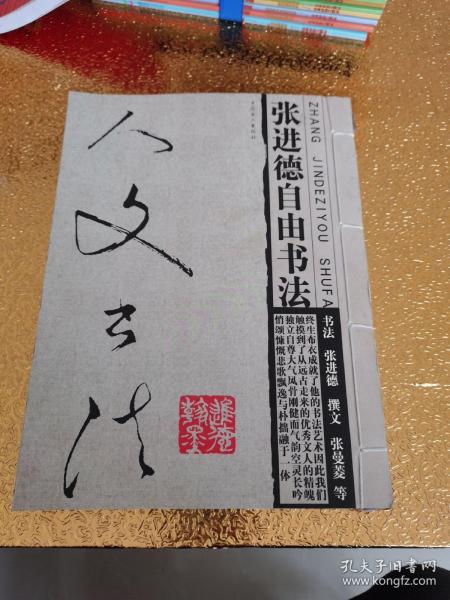 张进德自由书法
ZHANG JINDEZIYOU SHUFA
人文书法
进德
翰墨
书法 张进德 撰文 张曼菱 等
终生布衣成就了他的书法艺术因此我们
触摸到了从远古走来的优秀文人的精魄
独立自尊大气风骨刚健而气韵空灵长吟
悄颂慷慨悲歌飘逸与朴拙融于一体
孔夫子旧书网
www.kongfz.com